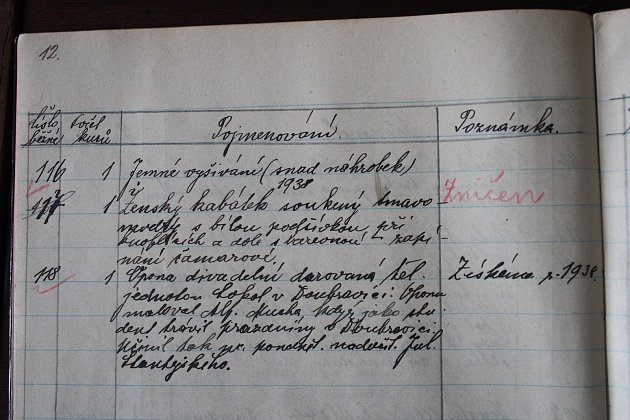 12.
číslo běžné
Počet kusů
Pojmenování.
Poznámka.
116 1 Jemné vyšívání (snad náhrobek)
1938
117 1 Ženský kabátek soukený tmavo-
modrý s bílou podšívkou, při
knoflících a dole s barevnou zapí-
nání čamarové.
Zničen
118 1 Opona divadelní darovaná těl.
jednotou Sokol v Doubravici. Oponu
maloval Alf. Mucha, když jako stu-
dent trávil prázdniny v Doubravici.
Učinil tak
nadučit. Jul.
Získáno r. 1938.